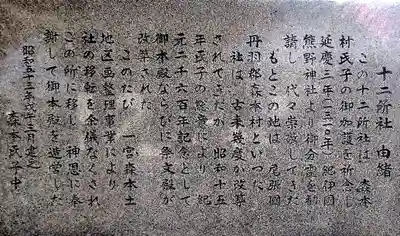 十二所社 由緒
この十二所社は 森本
村氏子の御加護を祈念し
延慶三年(一三一〇年)紀伊国
熊野神社より御分霊を勧
請し 代々崇敬してきた
もとこの地は 尾張国
丹羽郡森本村といった
社は 古来幾度か改築
されてきたが 昭和十五
年氏子の総意により 紀
元二千六百年記念として
御本殿ならびに祭文殿が
改築された
このたび 一宮森本土
地区画整理事業により
社の移転を余儀なくされ
この所に移し 神恩に奉
謝して御本殿を造営した
昭和五十三年十二月建之
森本氏子中